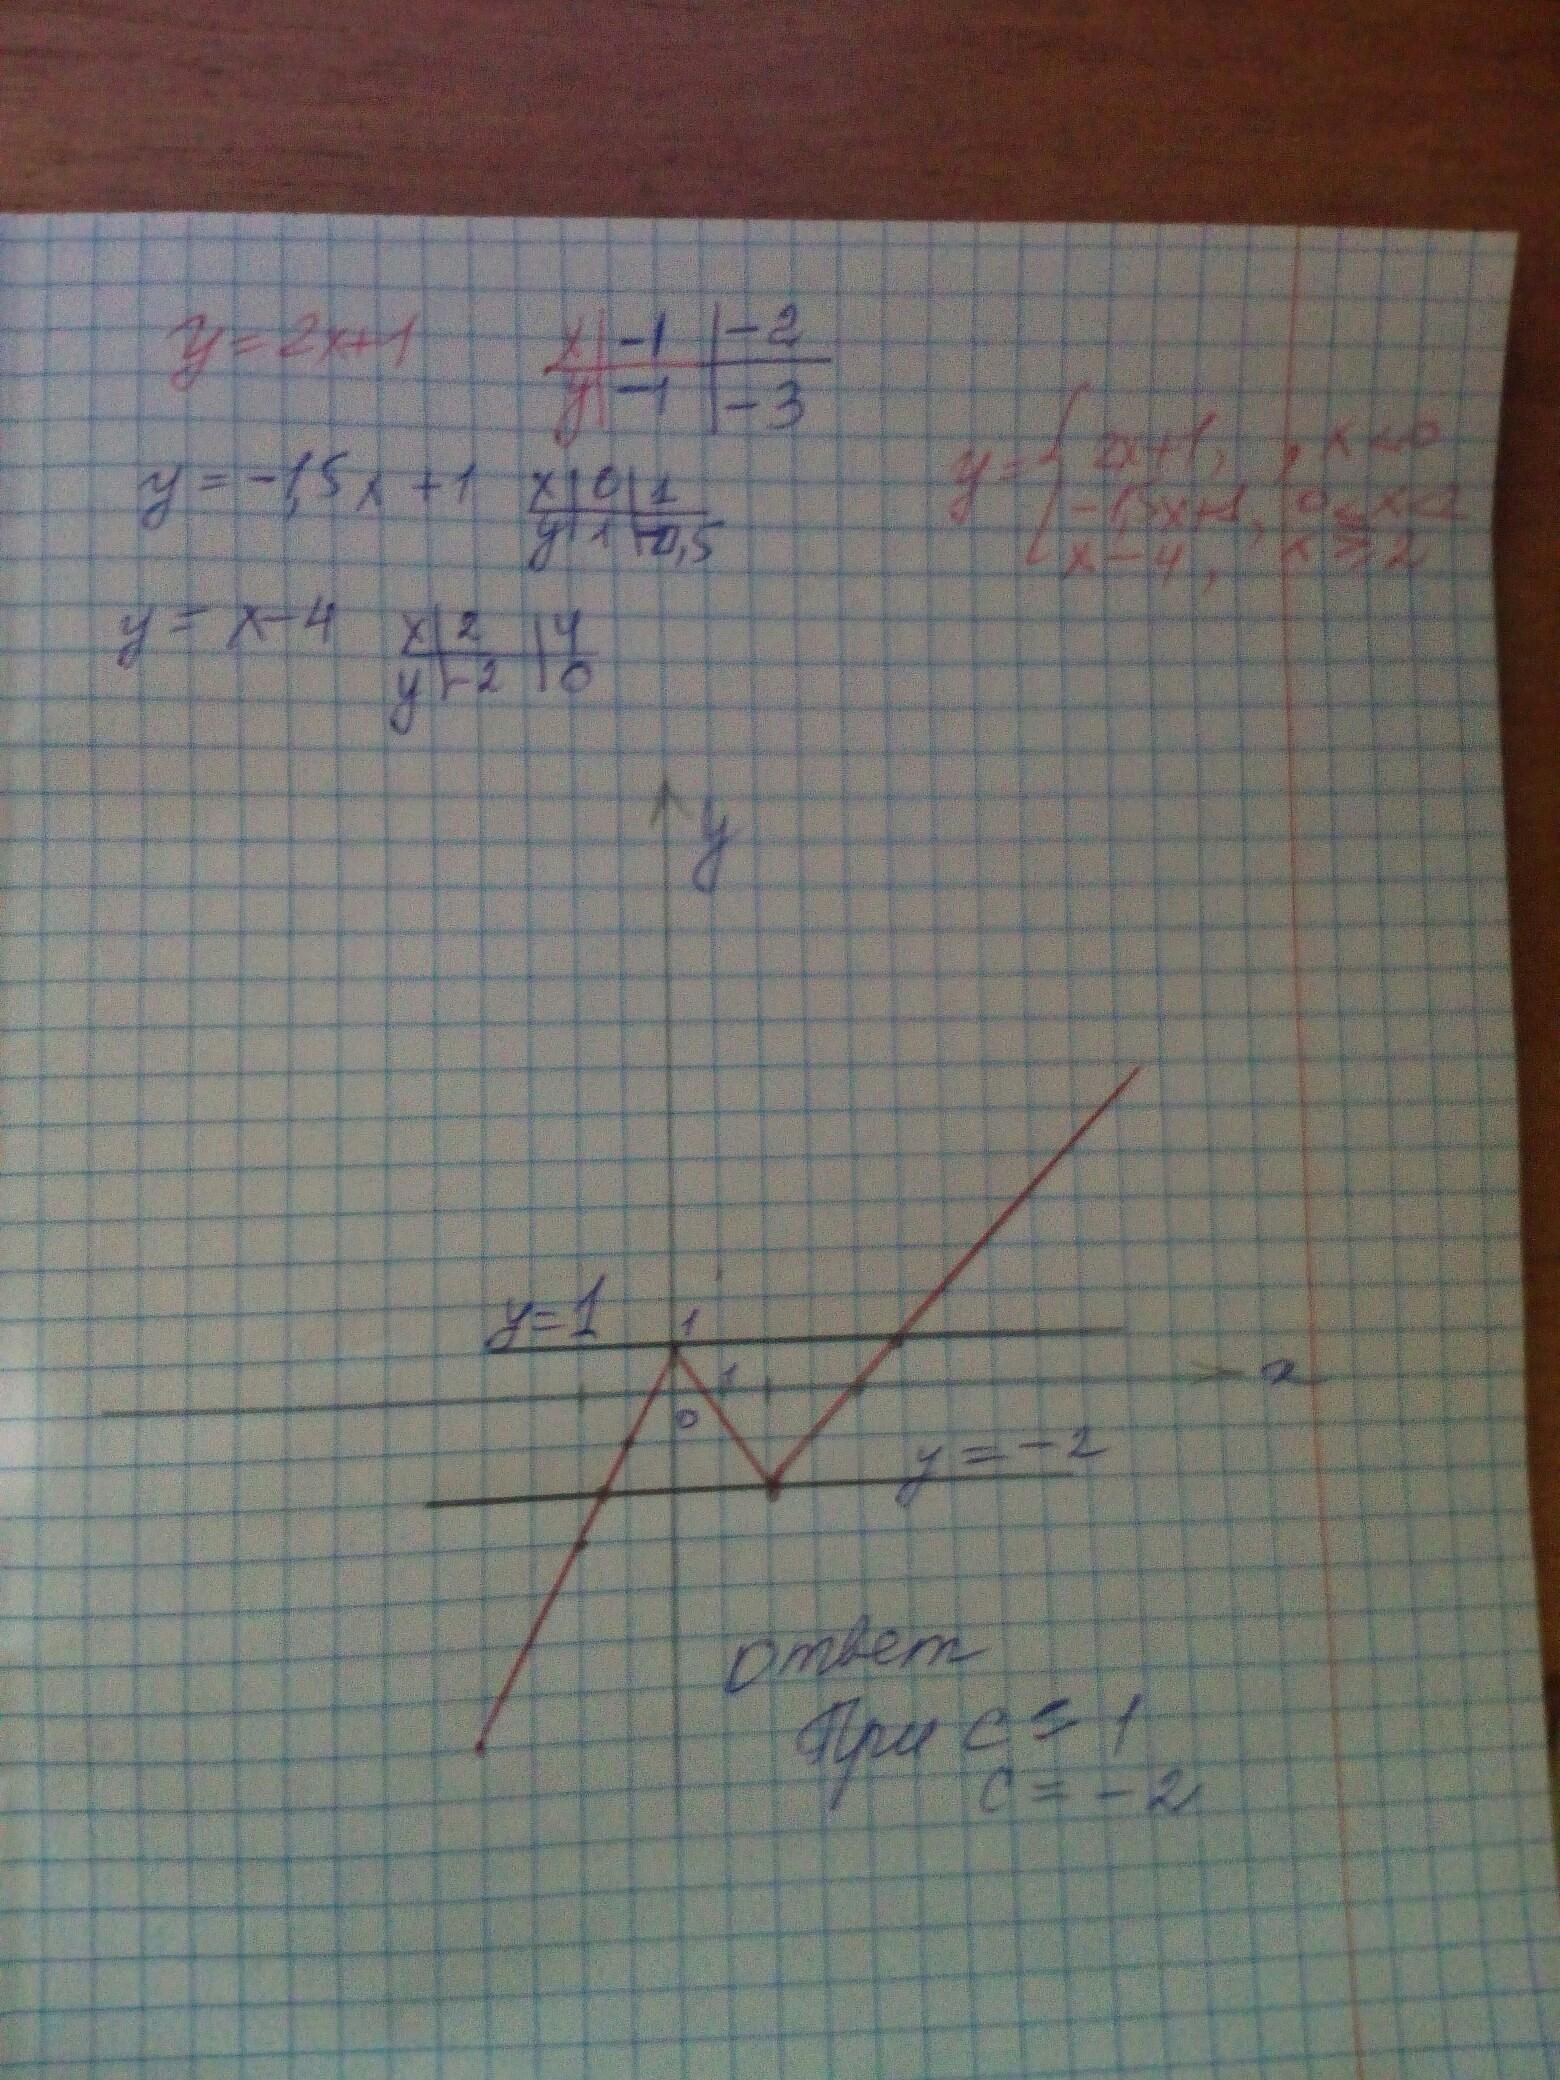 y = 2x+1
x | -1 | -2
y | -1 | -3
y = { 2x+1, , x < 0
-1,5x+1, 0 ≤ x < 2
x-4, x ≥ 2
y = -1,5x + 1
x | 0 | 1
y | 1 | -0,5
y = x-4
x | 2 | 4
y | -2 | 0
y
y = 1
1
1
x
0
y = -2
Ответ
При c = 1
c = -2